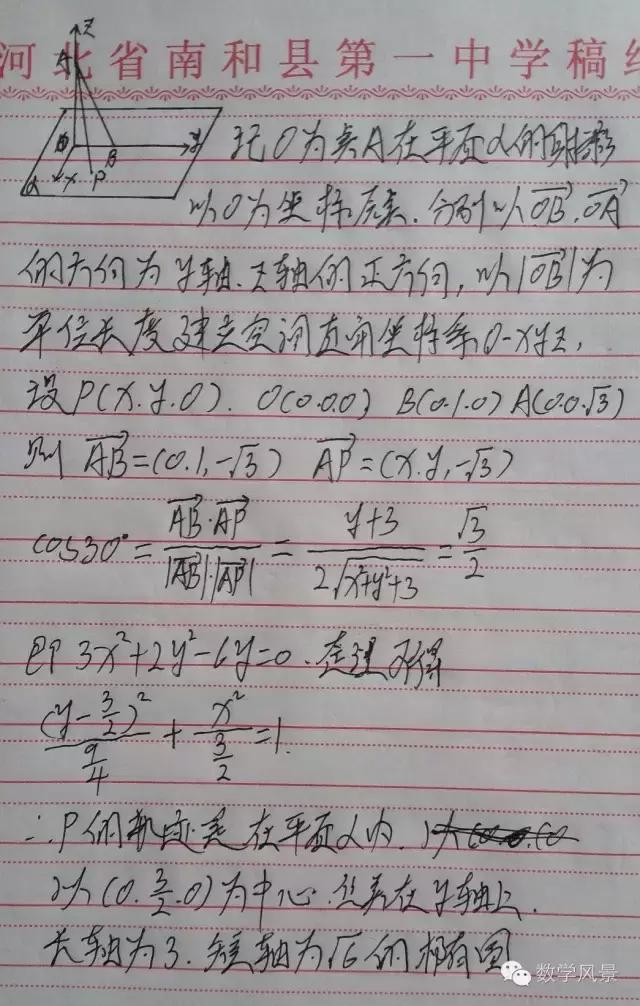 河北省南和县第一中学稿纸
z
A
O
B
y
α
x
P
记O为点A在平面α的射影
以O为坐标原点.分别以OB⃗.OA⃗
的方向为y轴.z轴的正方向,以|OB⃗|为
单位长度建立空间直角坐标系O-xyz,
设P(x.y.0). O(0.0.0) B(0.1.0) A(0.0.√3)
则 AB⃗=(0.1,-√3) AP⃗=(x.y,-√3)
cos30°=AB⃗·AP⃗/|AB⃗|·|AP⃗|=y+3/2√x²+y²+3=√3/2
即 3x²+2y²-6y=0.整理可得
(y-3/2)²/9/4+x²/3/2=1.
∴P的轨迹是在平面α内.以
以(0.3/2.0)为中心.焦点在y轴上.
长轴为3.短轴为√6的椭圆
数学风景